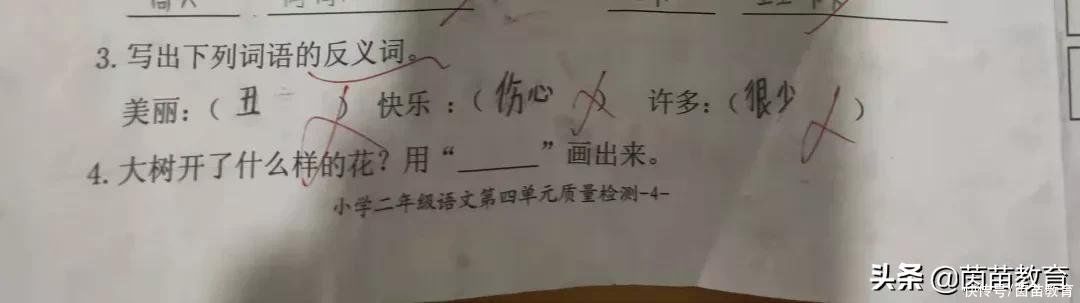 3. 写出下列词语的反义词。
美丽：（丑） 快乐：（伤心） 许多：（很少）
4. 大树开了什么样的花？用“______”画出来。
小学二年级语文第四单元质量检测-4-
头条 @茵苗教育
快传号/茵苗教育